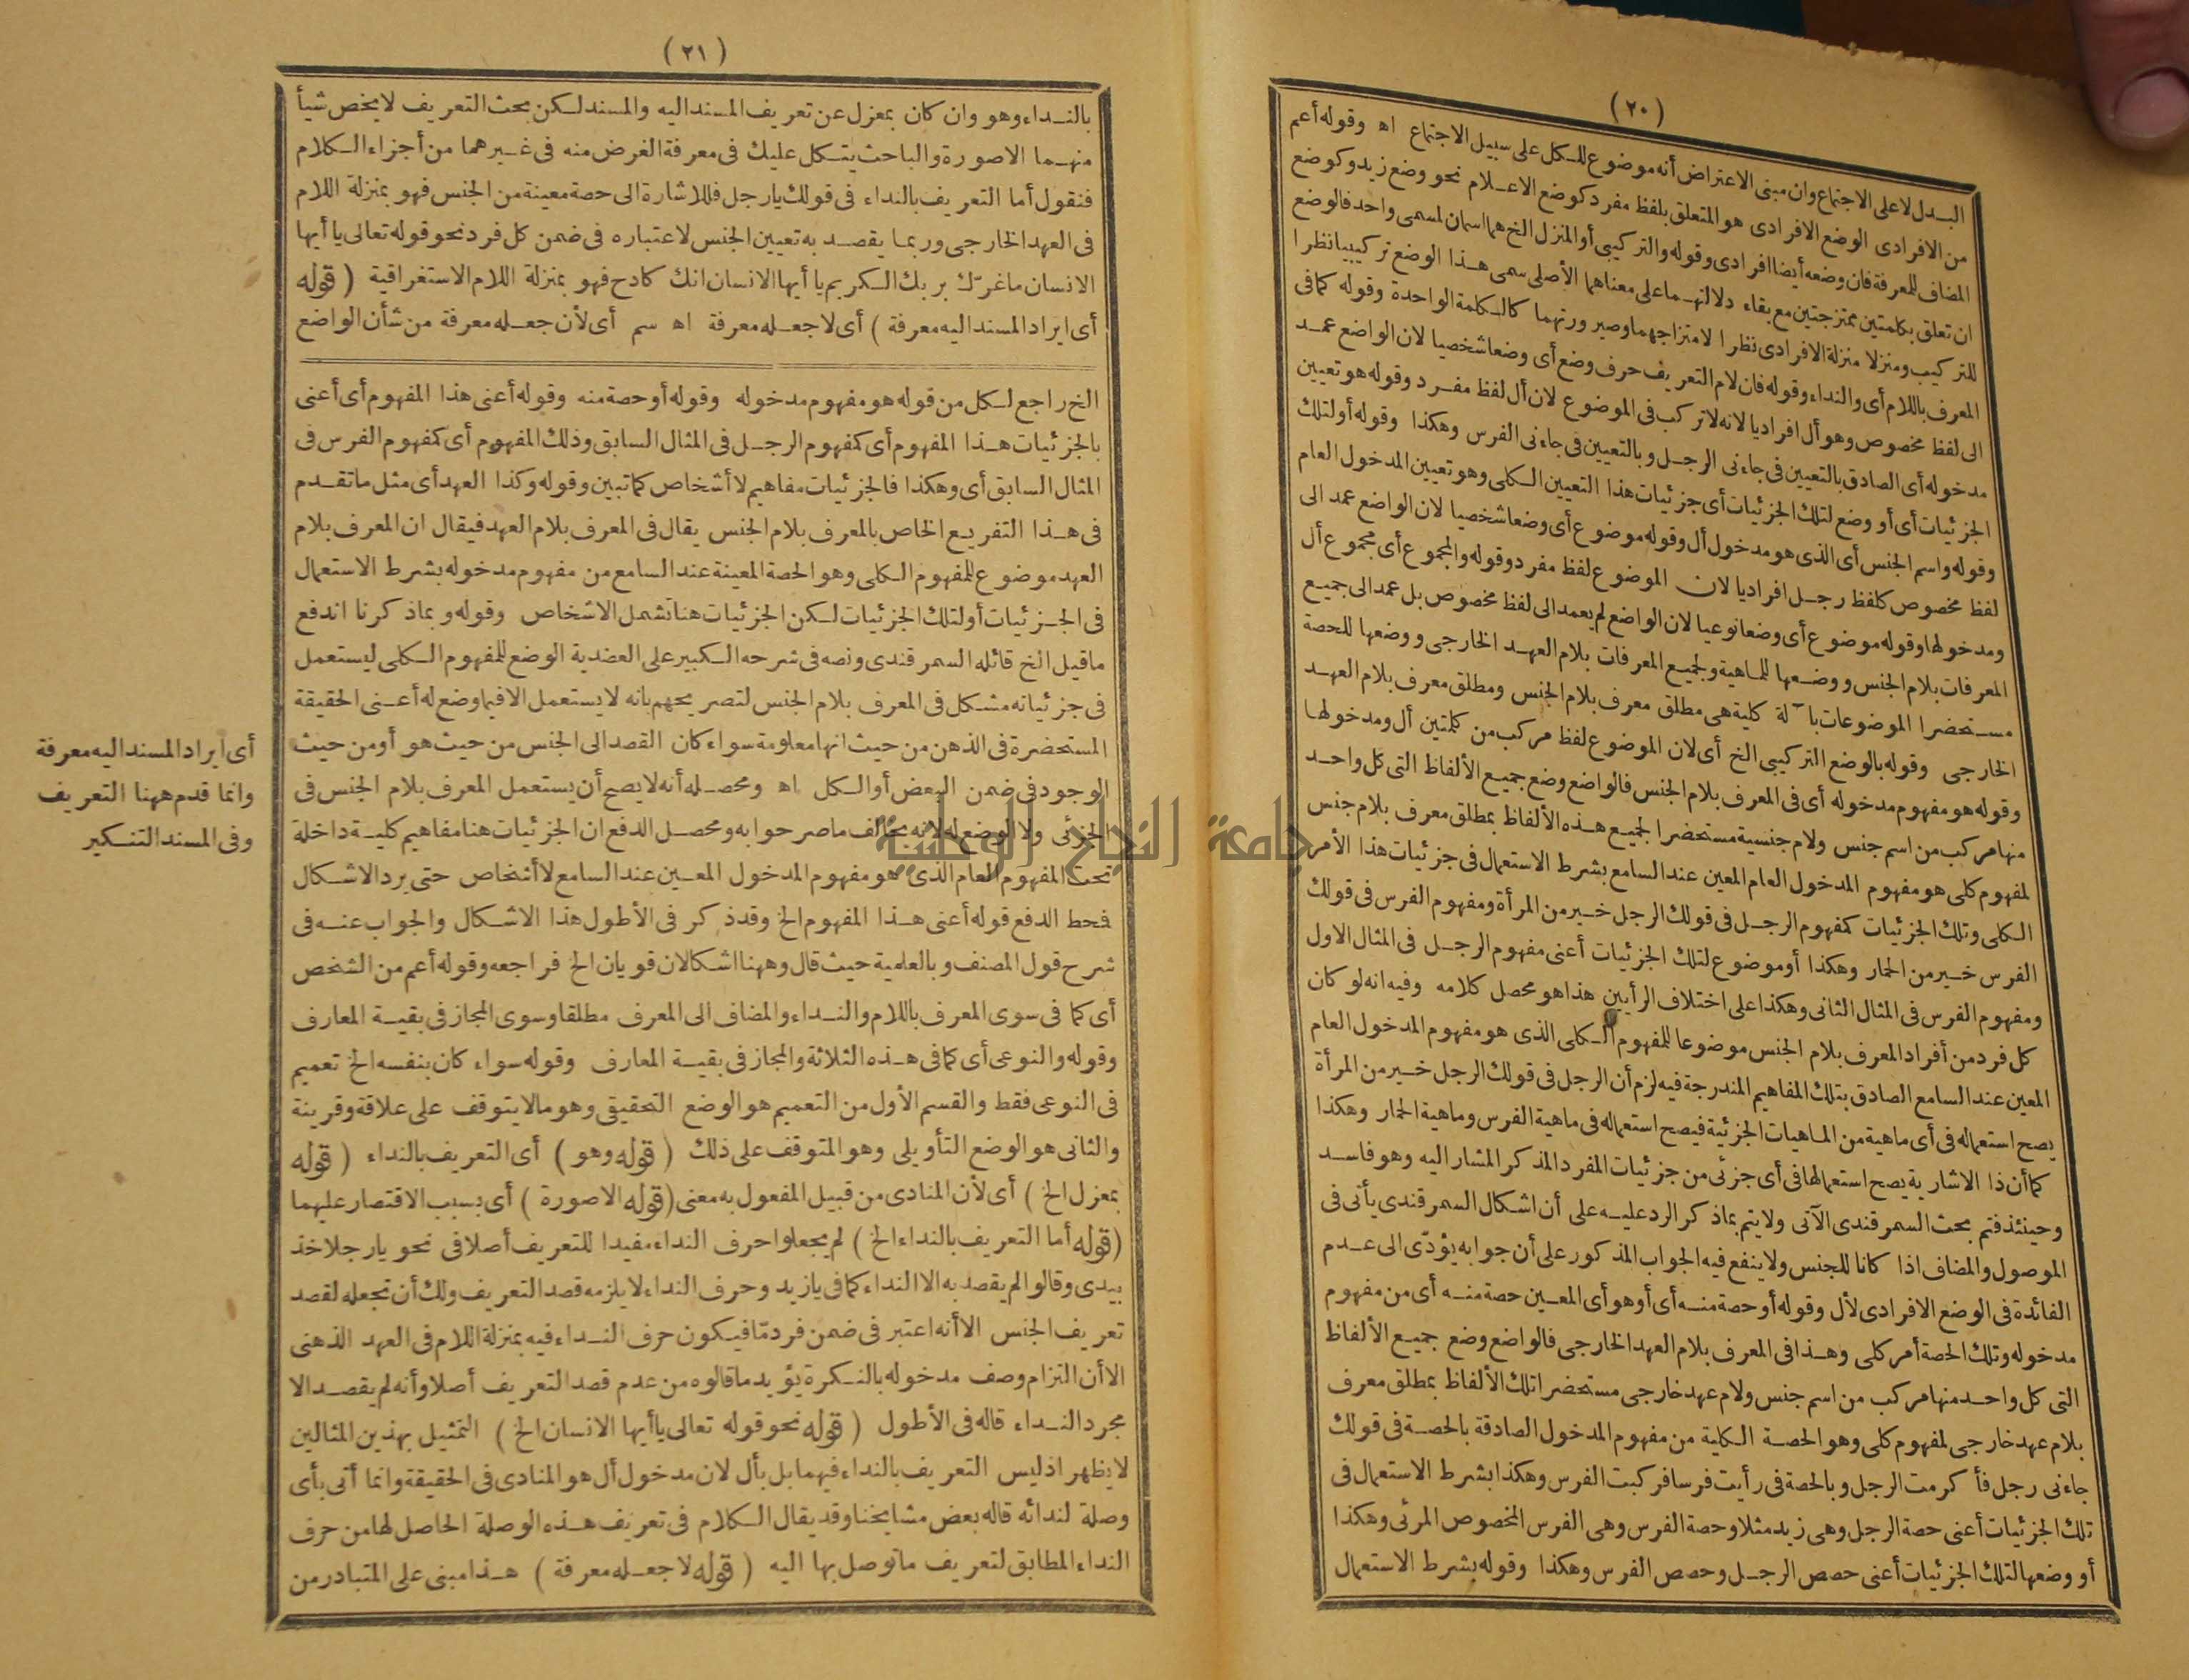 (٢٠)
البدل لا على الاجتماع وان مبنى الاعتراض أنه موضوع للكل على سبيل الاجتماع اه وقوله أعم
من الافرادى الوضع الافرادى هو المتعلق بلفظ مفرد كوضع الاعلام نحو وضع زيد وكوضع
المضاف للمعرفة فان وضعه أيضا افرادى وقوله والتركيبى أو المنزل الخ هما اسمان لمسمى واحد فالوضع
ان تعلق بكلمتين ممتزجتين مع بقاء دلالتهما على معناهما الأصلى سمى هذا الوضع تركيبيا نظرا
للتركيب ومنزلا منزلة الافرادى نظرا لامتزاجهما وصيرورتهما كالكلمة الواحدة وقوله كما فى
المعرف باللام أى والنداء وقوله فان لام التعريف حرف وضع أى وضعا شخصيا لان الواضع عمد
الى لفظ مخصوص وهو أل افراديا لانه لا تركب فى الموضوع لان أل لفظ مفرد وقوله هو تعيين
مدخوله أى الصادق بالتعيين فى جاءنى الرجل وبالتعيين فى جاءنى الفرس وهكذا وقوله أو لتلك
الجزئيات أى أو وضع لتلك الجزئيات أى جزئيات هذا التعيين الكلى وهو تعيين المدخول العام
وقوله واسم الجنس أى الذى هو مدخول أل وقوله موضوع أى وضعا شخصيا لان الواضع عمد الى
لفظ مخصوص كلفظ رجل افراديا لان الموضوع لفظ مفرد وقوله والمجموع أى مجموع أل
ومدخولها وقوله موضوع أى وضعا نوعيا لان الواضع لم يعمد الى لفظ مخصوص بل عمد الى جميع
المعرفات بلام الجنس ووضعها للماهية ولجميع المعرفات بلام العهد الخارجى ووضعها للحصة
مستحضرا الموضوعات بآلة كلية هى مطلق معرف بلام الجنس ومطلق معرف بلام العهد
الخارجى وقوله بالوضع التركيبى الخ أى لان الموضوع لفظ مركب من كلمتين أل ومدخولها
وقوله هو مفهوم مدخوله أى فى المعرف بلام الجنس فالواضع وضع جميع الألفاظ التى كل واحد
منها مركب من اسم جنس ولام جنسية مستحضرا لجميع هذه الألفاظ بمطلق معرف بلام جنس
لمفهوم كلى هو مفهوم المدخول العام المعين عند السامع بشرط الاستعمال فى جزئيات هذا الأمر
الكلى وتلك الجزئيات كمفهوم الرجل فى قولك الرجل خير من المرأة ومفهوم الفرس فى قولك
الفرس خير من الحمار وهكذا أو موضوع لتلك الجزئيات أعنى مفهوم الرجل فى المثال الاول
ومفهوم الفرس فى المثال الثانى وهكذا على اختلاف الرأيين هذا هو محصل كلامه وفيه انه لو كان
كل فرد من أفراد المعرف بلام الجنس موضوعا للمفهوم الكلى الذى هو مفهوم المدخول العام
المعين عند السامع الصادق بتلك المفاهيم المندرجة فيه لزم أن الرجل فى قولك الرجل خير من المرأة
يصح استعماله فى أى ماهية من الماهيات الجزئية فيصح استعماله فى ماهية الفرس وماهية الحمار وهكذا
كما أن ذا الاشارية يصح استعمالها فى أى جزئى من جزئيات المفرد المذكر المشار اليه وهو فاسد
وحينئذ فتم بحث السمرقندى الآتى ولا يتم بما ذكر الرد عليه على أن اشكال السمرقندى يأتى فى
الموصول والمضاف اذا كانا للجنس ولا ينفع فيه الجواب المذكور على أن جوابه يؤدّى الى عدم
الفائدة فى الوضع الافرادى لأل وقوله أو حصة منه أى أو هو أى المعين حصة منه أى من مفهوم
مدخوله وتلك الحصة أمر كلى وهذا فى المعرف بلام العهد الخارجى فالواضع وضع جميع الألفاظ
التى كل واحد منها مركب من اسم جنس ولام عهد خارجى مستحضرا تلك الألفاظ بمطلق معرف
بلام عهد خارجى لمفهوم كلى وهو الحصة الكلية من مفهوم المدخول الصادقة بالحصة فى قولك
جاءنى رجل فأكرمت الرجل وبالحصة فى رأيت فرسا فركبت الفرس وهكذا بشرط الاستعمال فى
تلك الجزئيات أعنى حصة الرجل وهى زيد مثلا وحصة الفرس وهى الفرس المخصوص المرئى وهكذا
أو وضعها لتلك الجزئيات أعنى حصص الرجل وحصص الفرس وهكذا وقوله بشرط الاستعمال
(٢١)
بالنداء وهو وان كان بمعزل عن تعريف المسند اليه والمسند لكن بحث التعريف لا يخص شيأ
منهما الا صورة والباحث يتكل عليك فى معرفة الغرض منه فى غيرهما من أجزاء الكلام
فنقول أما التعريف بالنداء فى قولك يا رجل فللاشارة الى حصة معينة من الجنس فهو بمنزلة اللام
فى العهد الخارجى وربما يقصد به تعيين الجنس لاعتباره فى ضمن كل فرد نحو قوله تعالى يا أيها
الانسان ما غرّك بربك الكريم يا أيها الانسان انك كادح فهو بمنزلة اللام الاستغراقية ( قوله
أى ايراد المسند اليه معرفة ) أى لا جعله معرفة اه سم أى لأن جعله معرفة من شأن الواضع
الخ راجع لكل من قوله هو مفهوم مدخوله وقوله أو حصة منه وقوله أعنى هذا المفهوم أى أعنى
بالجزئيات هذا المفهوم أى كمفهوم الرجل فى المثال السابق وذلك المفهوم أى كمفهوم الفرس فى
المثال السابق أى وهكذا فالجزئيات مفاهيم لا أشخاص كما تبين وقوله وكذا العهد أى مثل ما تقدم
فى هذا التفريع الخاص بالمعرف بلام الجنس يقال فى المعرف بلام العهد فيقال ان المعرف بلام
العهد موضوع للمفهوم الكلى وهو الحصة المعينة عند السامع من مفهوم مدخوله بشرط الاستعمال
فى الجزئيات أو لتلك الجزئيات لكن الجزئيات هنا تشمل الاشخاص وقوله وبما ذكرنا اندفع
ما قيل الخ قائله السمرقندى ونصه فى شرحه الكبير على العضدية الوضع للمفهوم الكلى ليستعمل
فى جزئياته مشكل فى المعرف بلام الجنس لتصريحهم بانه لا يستعمل الا فيما وضع له أعنى الحقيقة
المستحضرة فى الذهن من حيث انها معلومة سواء كان القصد الى الجنس من حيث هو أو من حيث
الوجود فى ضمن البعض أو الكل اه ومحصله أنه لا يصح أن يستعمل المعرف بلام الجنس فى
الجزئى ولا الوضع له لانه يخالف ما صرحوا به ومحصل الدفع ان الجزئيات هنا مفاهيم كلية داخلة
تحت المفهوم العام الذى هو مفهوم المدخول المعين عند السامع لا أشخاص حتى يرد الاشكال
فحط الدفع قوله أعنى هذا المفهوم الخ وقد ذكر فى الأطول هذا الاشكال والجواب عنه فى
شرح قول المصنف وبالعلمية حيث قال وههنا اشكالان قويان الخ فراجعه وقوله أعم من الشخص
أى كما فى سوى المعرف باللام والنداء والمضاف الى المعرف مطلقا وسوى المجاز فى بقية المعارف
وقوله والنوعى أى كما فى هذه الثلاثة والمجاز فى بقية المعارف وقوله سواء كان بنفسه الخ تعميم
فى النوعى فقط والقسم الأول من التعميم هو الوضع التحقيقى وهو ما لا يتوقف على علاقة وقرينة
والثانى هو الوضع التأويلى وهو المتوقف على ذلك ( قوله وهو ) أى التعريف بالنداء ( قوله
بمعزل الخ ) أى لأن المنادى من قبيل المفعول به معنى ( قوله الا صورة ) أى بسبب الاقتصار عليهما
( قوله أما التعريف بالنداء الخ ) لم يجعلوا حرف النداء مفيدا للتعريف أصلا فى نحو يا رجلا خذ
بيدى وقالوا لم يقصد به الا النداء كما فى يا زيد وحرف النداء لا يلزمه قصد التعريف ولك أن تجعله لقصد
تعريف الجنس الا أنه اعتبر فى ضمن فرد مّا فيكون حرف النداء فيه بمنزلة اللام فى العهد الذهنى
الا أن التزام وصف مدخوله بالنكرة يؤيد ما قالوه من عدم قصد التعريف أصلا وأنه لم يقصد الا
مجرد النداء قاله فى الأطول ( قوله نحو قوله تعالى يا أيها الانسان الخ ) التمثيل بهذين المثالين
لا يظهر اذ ليس التعريف بالنداء فيهما بل بأل لان مدخول أل هو المنادى فى الحقيقة وانما أتى بأى
وصلة لندائه قاله بعض مشايخنا وقد يقال الكلام فى تعريف هذه الوصلة الحاصل لها من حرف
النداء المطابق لتعريف ما توصل بها اليه ( قوله لا جعله معرفة ) هذا مبنى على المتبادر من
أى ايراد المسند اليه معرفة
وانما قدم ههنا التعريف
وفى المسند التنكير
جامعة النجاح الوطنية